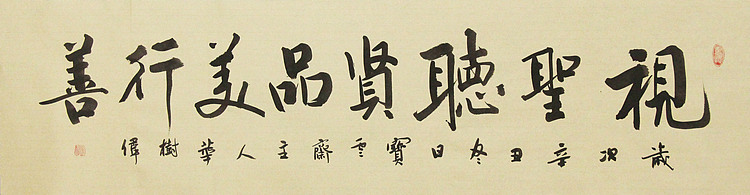 視聖聽賢品美行善
歲次辛丑冬日寶雲齋主人華樹偉